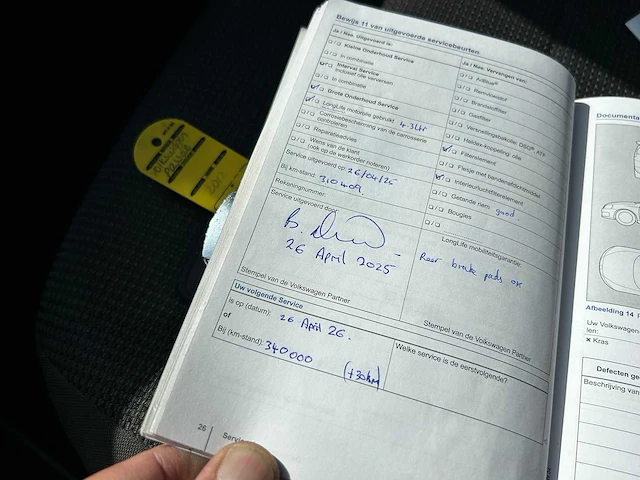 Bewijs 11 van uitgevoerde servicebeurten
Ja / Nee, Uitgevoerd is:
Kleine Onderhoud Service
In combinatie
Interval Service
inclusief olie verversen
In combinatie
Grote Onderhoud Service
LongLife motorolie gebruikt 4.3 Ltr
Corrosiebescherming van de carrosserie
controleren
Reparatieadvies
Wens van de klant
(ook op de werkorder noteren)
Service uitgevoerd op: 26/04/25
Bij km-stand: 310409
Rekeningnummer:
Service uitgevoerd door:
B.
26 April 2025
Stempel van de Volkswagen Partner
Ja / Nee, Vervangen van:
AdBlue®
Remvloeistof
Brandstoffilter
Gasfilter
Versnellingsbakolie: DSG® ATX
Haldex-koppeling: olie
Filterelement
Flesje met bandenafdichtmiddel
Interieurluchtfilterelement
Getande riem good
Bougies
LongLife mobiliteitsgarantie:
Rear brake pads ok
Stempel van de Volkswagen Partner
Uw volgende Service
is op (datum): 26 April 26.
of
Bij (km-stand): 340000
(+30km)
Welke service is de eerstvolgende?
26
Documenta
Afbeelding 14
Uw Volkswagen
len:
× Kras
Defecten ge
Beschrijving van